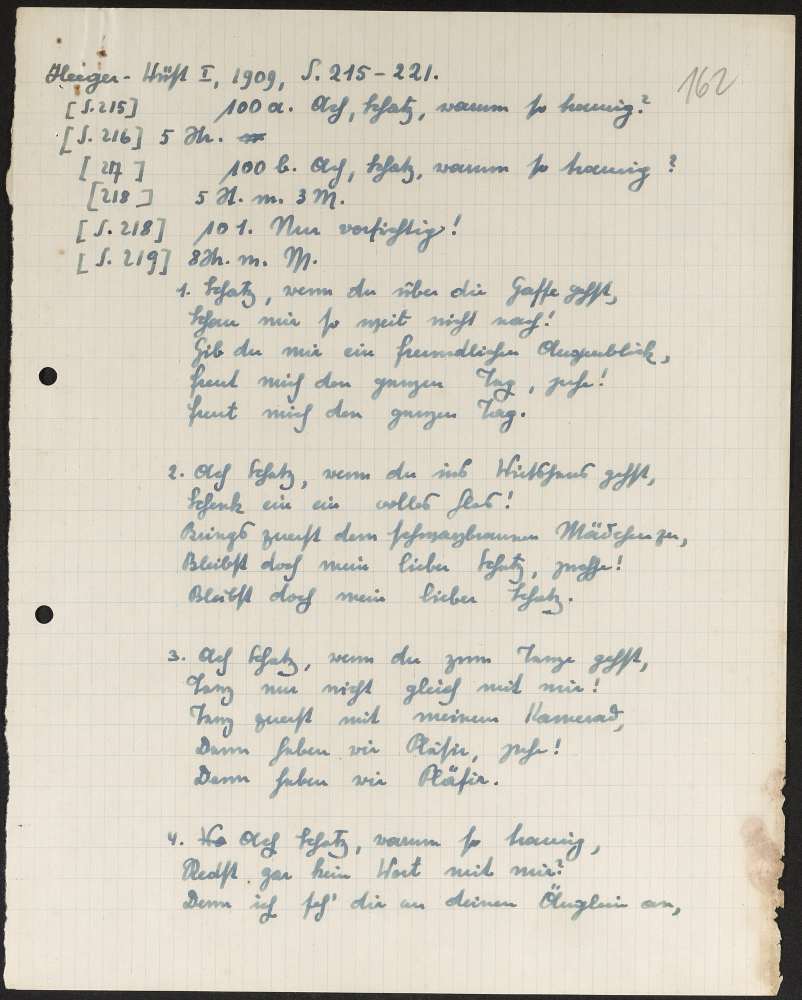 Heeger-Wüst II, 1909, S. 215-221.
162
[S. 215] 100 a. Ach, Schatz, warum so traurig?
[S. 216] 5 Str.
[217] 100 b. Ach, Schatz, warum so traurig?
[218] 5 St. m. 3 M.
[S. 218] 101. Nur vorsichtig!
[S. 219] 8 Str. m. M.
1. Schatz, wenn du über die Gasse gehst,
Schau mir so weit nicht nach!
Gib du mir ein freundlichen Augenblick,
freut mich den ganzen Tag, juhe!
freut mich den ganzen Tag.
2. Ach Schatz, wenn du ins Wirtshaus gehst,
Schenk ein ein volles Glas!
Brings zuerst dem schwarzbraunen Mädchen zu,
Bleibst doch mein lieber Schatz, juchhe!
Bleibst doch mein lieber Schatz.
3. Ach Schatz, wenn du zum Tanze gehst,
Tanz nur nicht gleich mit mir!
Tanz zuerst mit meinem Kamerad,
Dann haben wir Pläsir, juhe!
Dann haben wir Pläsir.
4. Ach Schatz, warum so traurig,
Redst gar kein Wort mit mir?
Denn ich seh' dir an deinen Äuglein an,